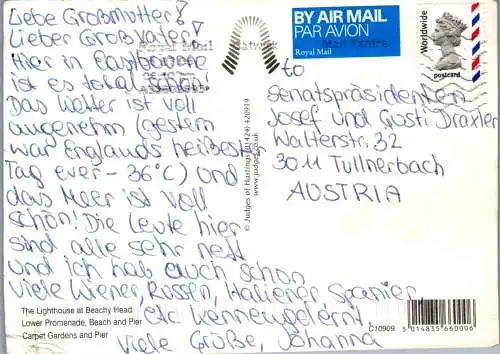 Liebe Großmutter!
Lieber Großvater!
Hier in Eastbourne
ist es total schön!
Das Wetter ist voll
angenehm (gestern
war Englands heißester
Tag ever - 36°C) und
das Meer ist voll
schön! Die Leute hier
sind alle sehr nett
und ich hab auch schon
viele Wiener, Russen, Italiener Spanier
etc kennengelernt
Viele Grüße, Johanna
The Lighthouse at Beachy Head
Lower Promenade, Beach and Pier
Carpet Gardens and Pier
Royal Mail
© Judges of Hastings (01424) 420919
www.judges.co.uk
BY AIR MAIL
PAR AVION
Royal Mail
Worldwide
postcard
to
Senatspräsidenten
Josef und Gusti Draxler
Walterstr. 32
3011 Tullnerbach
AUSTRIA
C10909
5 014835 660006